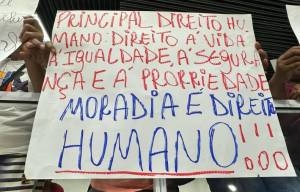 PRINCIPAL DIREITO HU
MANO: DIREITO A' VIDA
A' IGUALDADE, A' SEGURAN
ÇA E A' PRORRIEDADE
MORADIA É DIREITO
HUMANO!!!